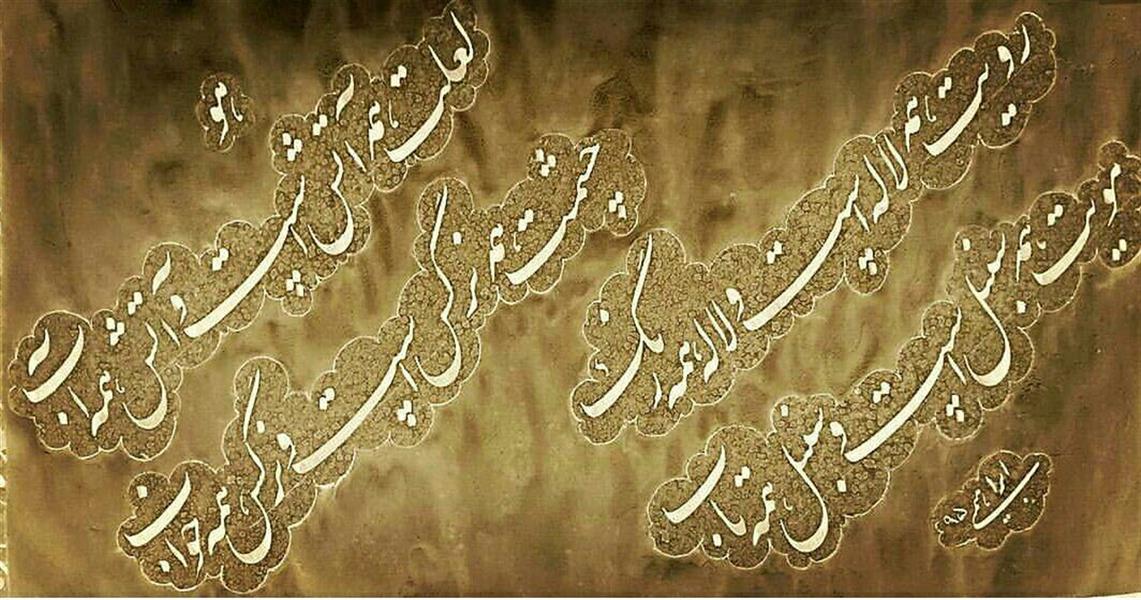 هو
رویت همه لاله است و لاله همه رنگ
مویت همه سنبل است و سنبل همه تاب
لعلت همه آتش است و آتش همه آب
چشمت همه نرگس است و نرگس همه خواب